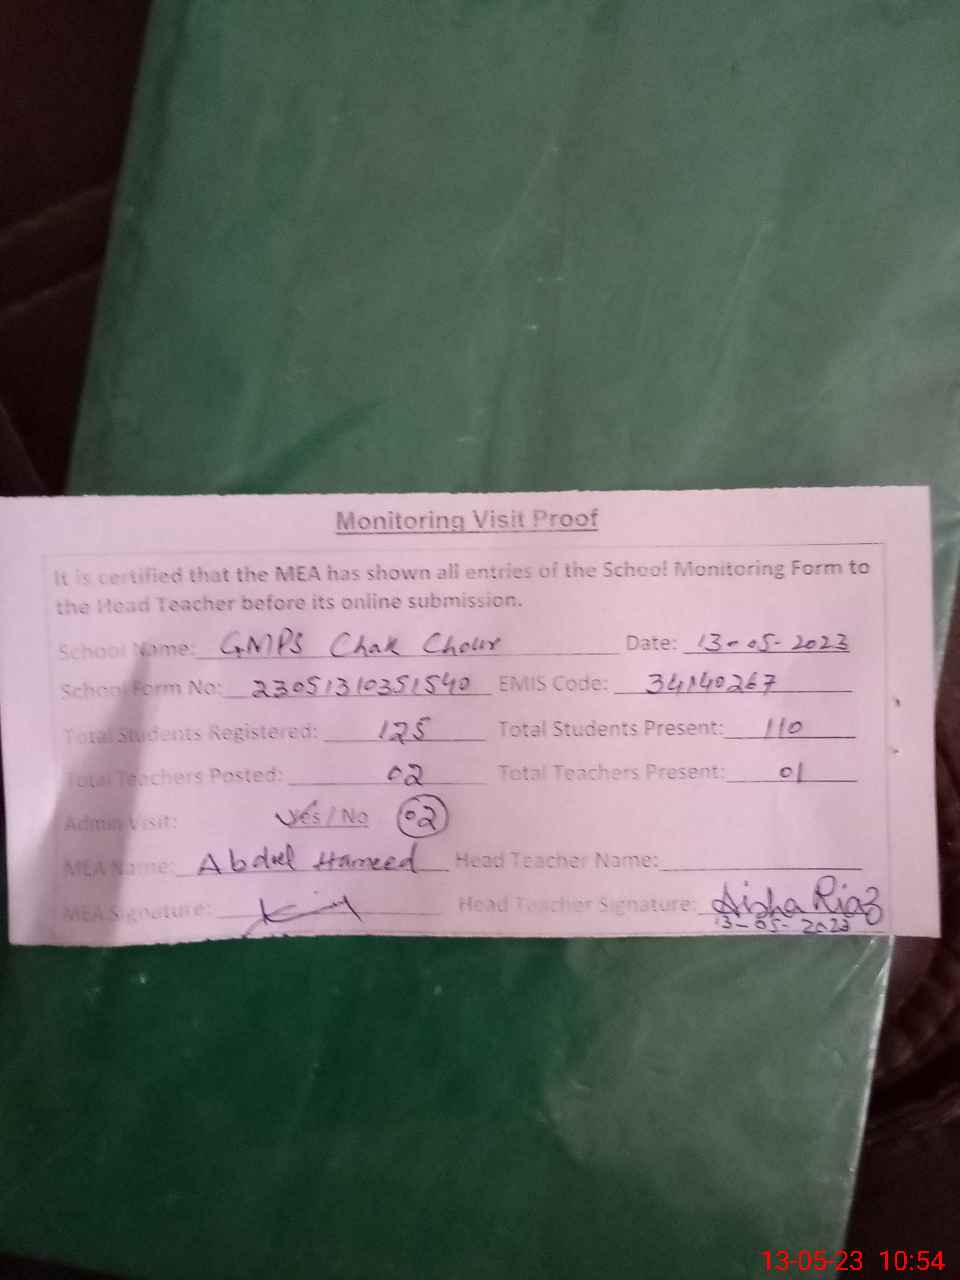 Monitoring Visit Proof
It is certified that the MEA has shown all entries of the School Monitoring Form to
the Head Teacher before its online submission.
School Name: GMPS Chak Chour Date: 13-05-2023
School Form No: 23051310351540 EMIS Code: 34140267
Total Students Registered: 125 Total Students Present: 110
Total Teachers Posted: 02 Total Teachers Present: 01
Admin Visit: Yes / No 02
MEA Name: Abdul Hameed Head Teacher Name:
MEA Signature: Head Teacher Signature: Aisha Riaz
13-05-2023
13-05-23 10:54